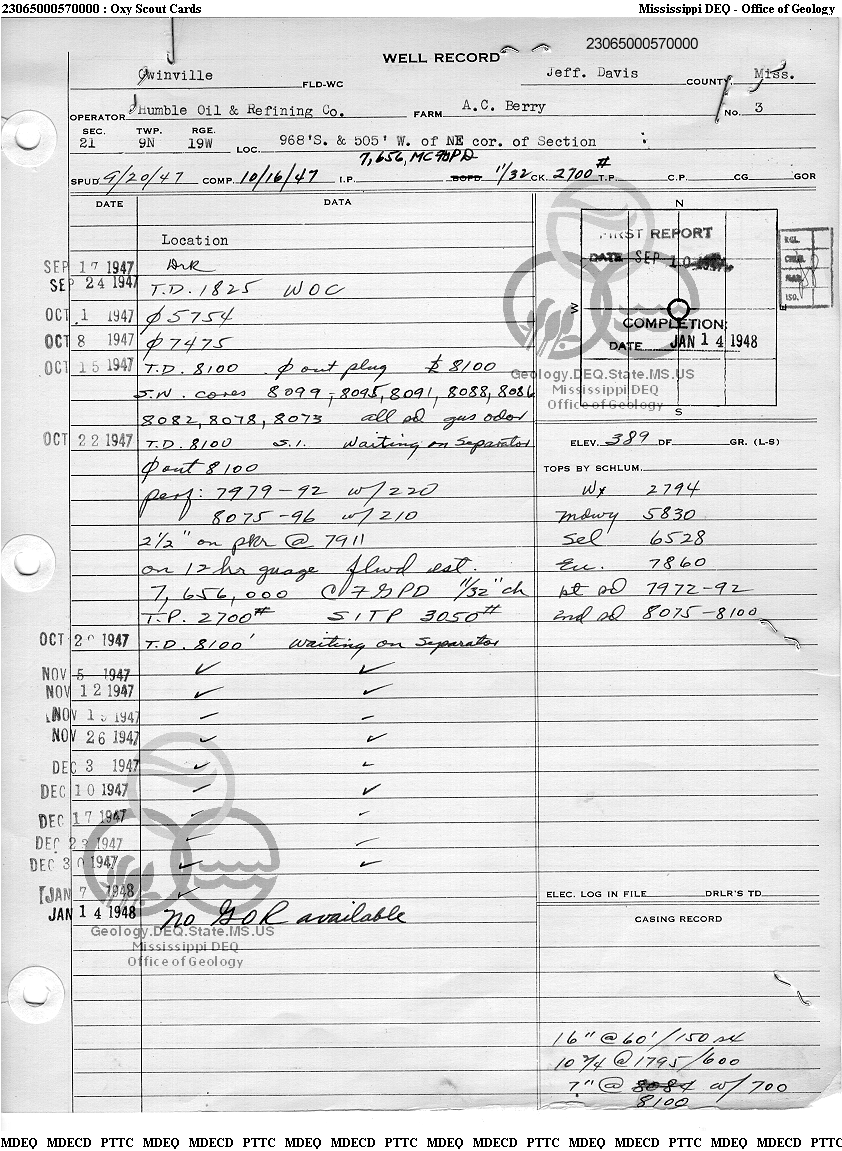 23065000570000 : Oxy Scout Cards Mississippi DEQ - Office of Geology
23065000570000
WELL RECORD
Gwinville FLD-WC Jeff. Davis COUNTY Miss.
OPERATOR Humble Oil & Refining Co. FARM A.C. Berry No. 3
SEC. TWP. RGE.
21 9N 19W LOC. 968'S. & 505' W. of NE cor. of Section
7,656, MCFGPD
SPUD 9/20/47 COMP. 10/16/47 I.P. BOPD 11/32 CK. 2700# T.P. C.P. CG GOR
DATE DATA
N
Location
FIRST REPORT
DATE SEP 10
RGL.
ISO.
SEP 17 1947 Drk
SEP 24 1947 T.D. 1825 WOC
OCT 1 1947 Ø 5754
W E
COMPLETION;
DATE JAN 14 1948
OCT 8 1947 Ø 7475
OCT 15 1947 T.D. 8100 Ø out plug 8100
Geology.DEQ.State.MS.US
Mississippi DEQ
Office of Geology
S
S.W. cores 8099, 8095, 8091, 8088, 8086
8082, 8078, 8073 all sd gas odor
OCT 22 1947 T.D. 8100 S.I. Waiting on Separator
Ø out 8100
perf: 7979-92 w/220
8075-96 w/210
2½" on pkr @ 7911
on 12 hr guage flwd est.
7,656,000 CFGPD 11/32" ch
T.P. 2700# SITP 3050#
ELEV. 389 DF GR. (L-S)
TOPS BY SCHLUM.
Wx 2794
Mdwy 5830
Sel 6528
Eu. 7860
1st sd 7972-92
2nd sd 8075-8100
OCT 29 1947 T.D. 8100' Waiting on Separator
NOV 5 1947 ✓ ✓
NOV 12 1947 ✓ ✓
NOV 19 1947 ✓ ✓
NOV 26 1947 ✓ ✓
DEC 3 1947 ✓ ✓
DEC 10 1947 ✓ ✓
DEC 17 1947 ✓ ✓
DEC 23 1947 ✓ ✓
DEC 30 1947 ✓ ✓
JAN 7 1948 ✓
JAN 14 1948 No GOR available
Geology.DEQ.State.MS.US
Mississippi DEQ
Office of Geology
ELEC. LOG IN FILE DRLR'S TD
CASING RECORD
16" @ 60'/150 sx
10 3/4 @ 1795/600
7" @ 8084 w/700
8100
MDEQ MDECD PTTC MDEQ MDECD PTTC MDEQ MDECD PTTC MDEQ MDECD PTTC MDEQ MDECD PTTC MDEQ MDECD PTTC